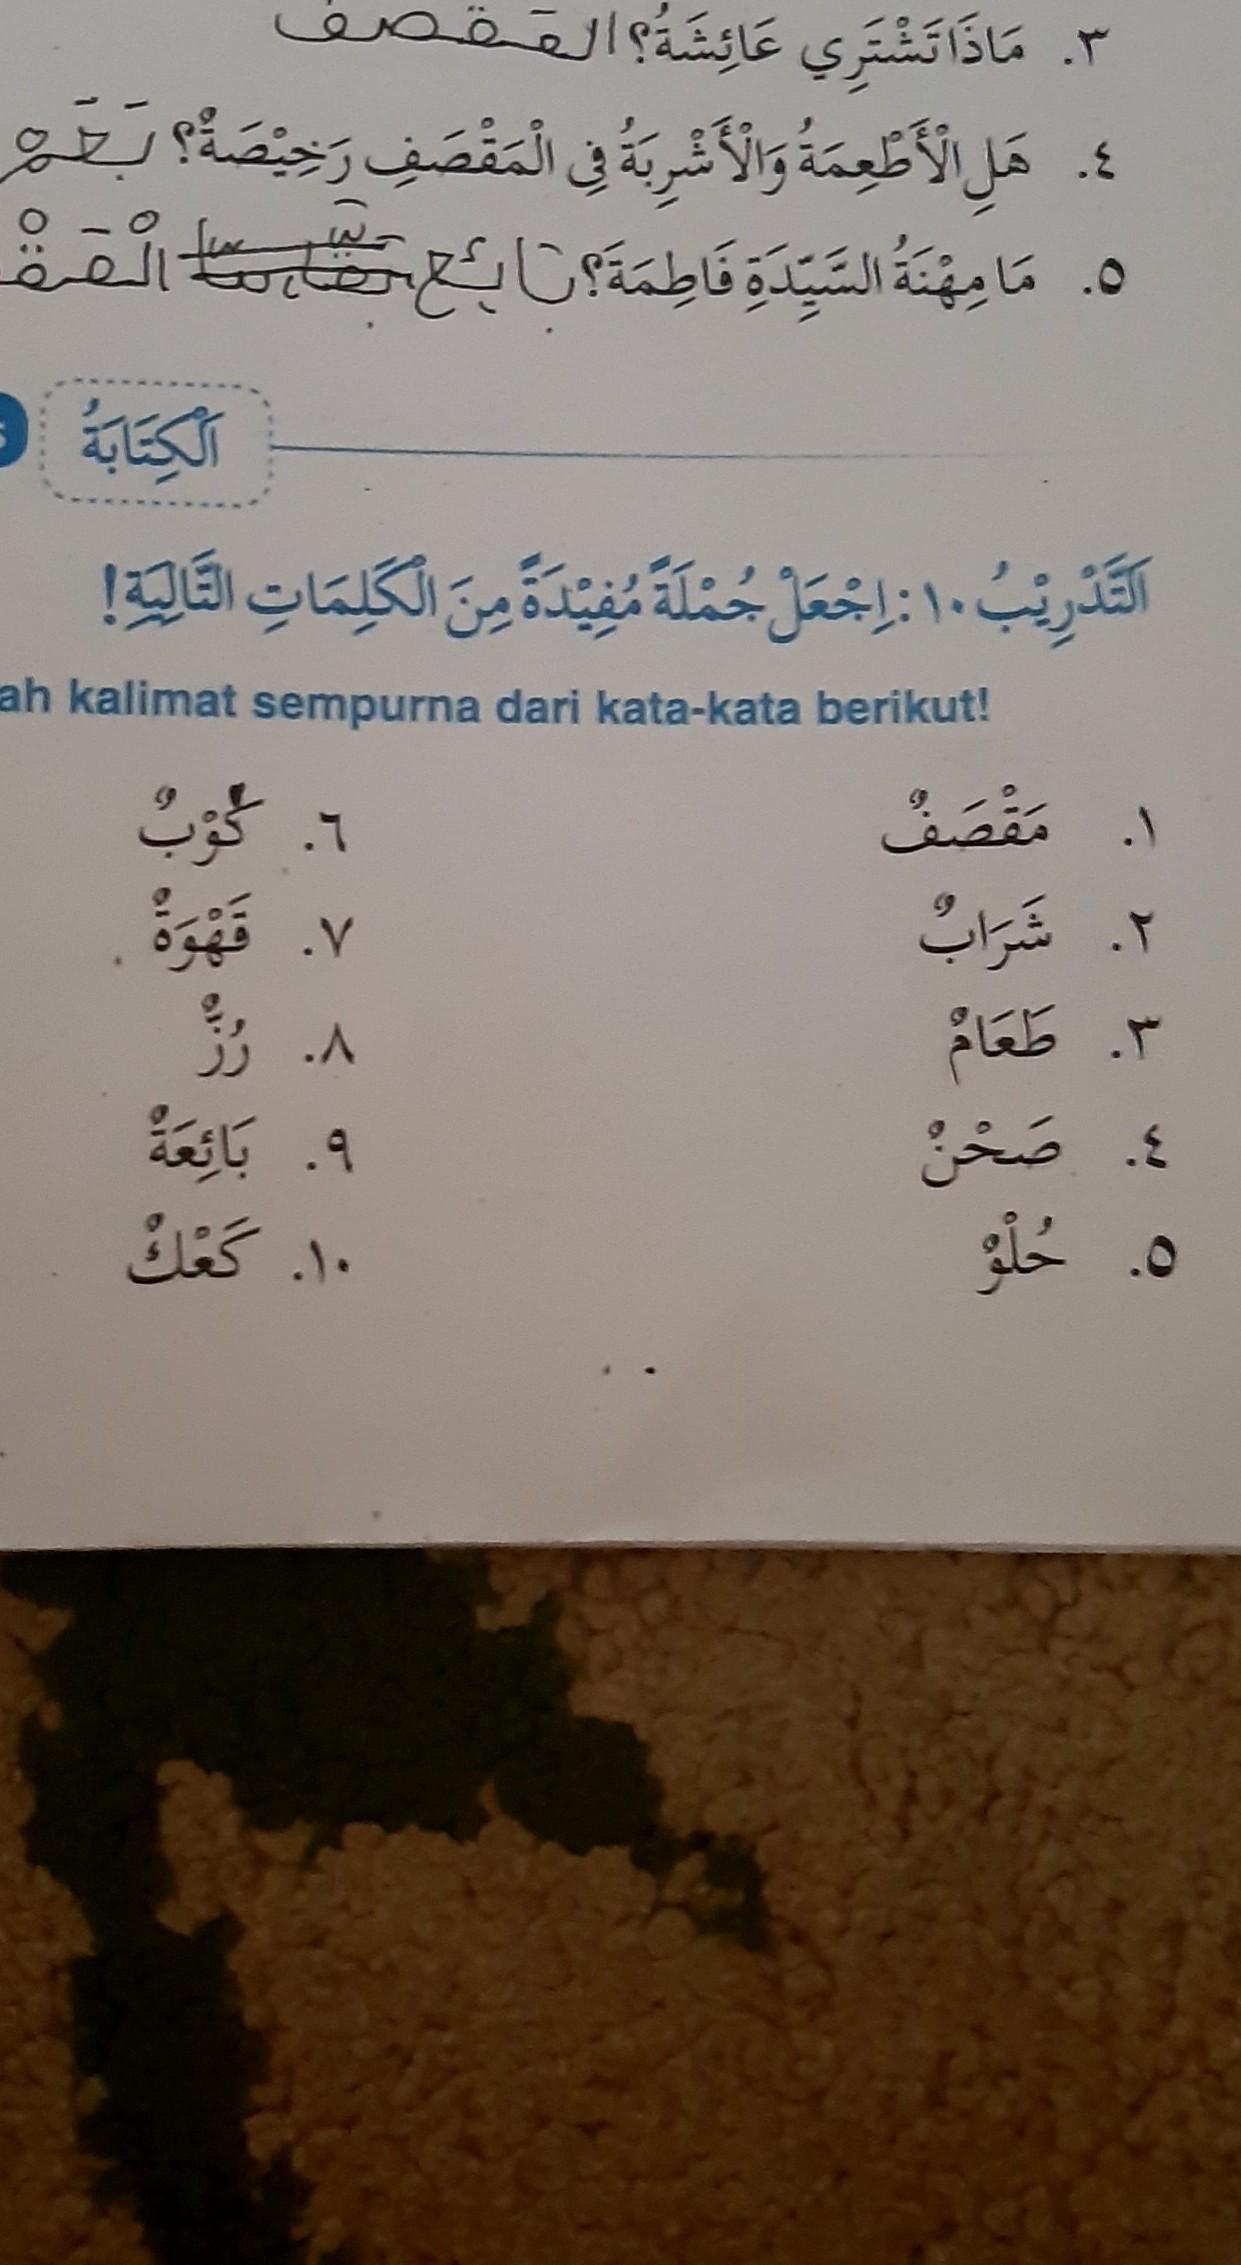 ٣. مَاذَا تَشْتَرِي عَائِشَةُ؟ القَقصف
٤. هَلِ الْأَطْعِمَةُ وَالْأَشْرِبَةُ فِي الْمَقْصَفِ رَخِيْصَةٌ؟
٥. مَا مِهْنَةُ السَّيِّدَةِ فَاطِمَةَ؟ بائع
اَلْكِتَابَةُ
اَلتَّدْرِيْبُ ١٠: اِجْعَلْ جُمْلَةً مُفِيْدَةً مِنَ الْكَلِمَاتِ التَّالِيَةِ!
ah kalimat sempurna dari kata-kata berikut!
١. مَقْصَفٌ
٢. شَرَابٌ
٣. طَعَامٌ
٤. صَحْنٌ
٥. حُلْوٌ
٦. كُوْبٌ
٧. قَهْوَةٌ
٨. رُزٌّ
٩. بَائِعَةٌ
١٠. كَعْكٌ